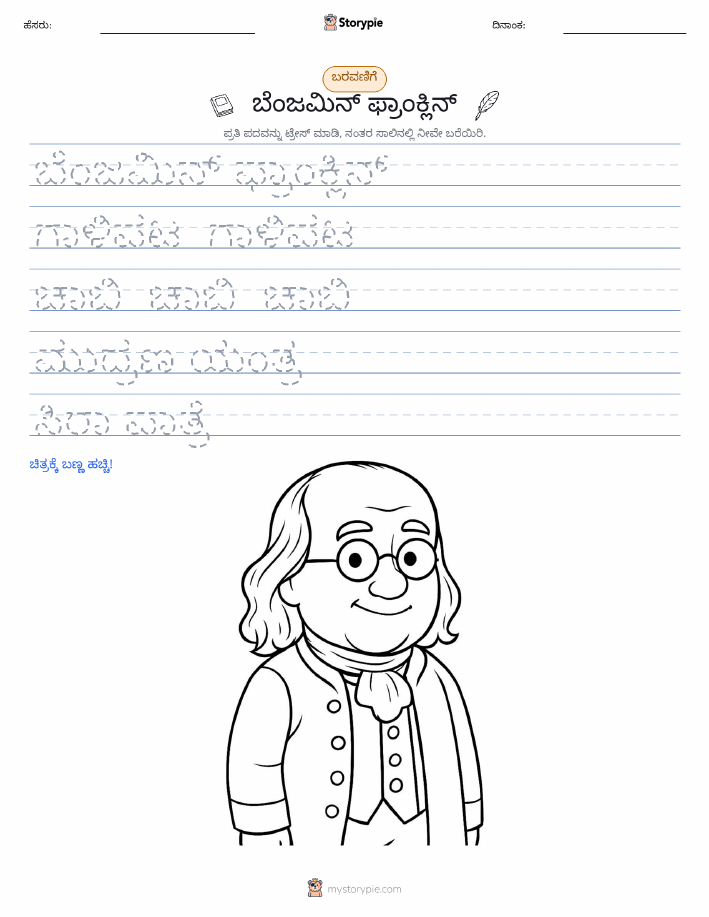 ಹೆಸರು:
Storypie
ದಿನಾಂಕ:
ಬರವಣಿಗೆ
ಬೆಂಜಮಿನ್ ಫ್ರಾಂಕ್ಲಿನ್
ಪ್ರತಿ ಪದವನ್ನು ಟ್ರೇಸ್ ಮಾಡಿ, ನಂತರ ಸಾಲಿನಲ್ಲಿ ನೀವೇ ಬರೆಯಿರಿ.
ಬೆಂಜಮಿನ್ ಫ್ರಾಂಕ್ಲಿನ್
ಗಾಳಿಪಟ ಗಾಳಿಪಟ
ಚಾಬಿ ಚಾಬಿ ಚಾಬಿ
ಮುದ್ರಣ ಯಂತ್ರ
ಸಿರಾ ಪಾತ್ರೆ
ಚಿತ್ರಕ್ಕೆ ಬಣ್ಣ ಹಚ್ಚಿ!
mystorypie.com